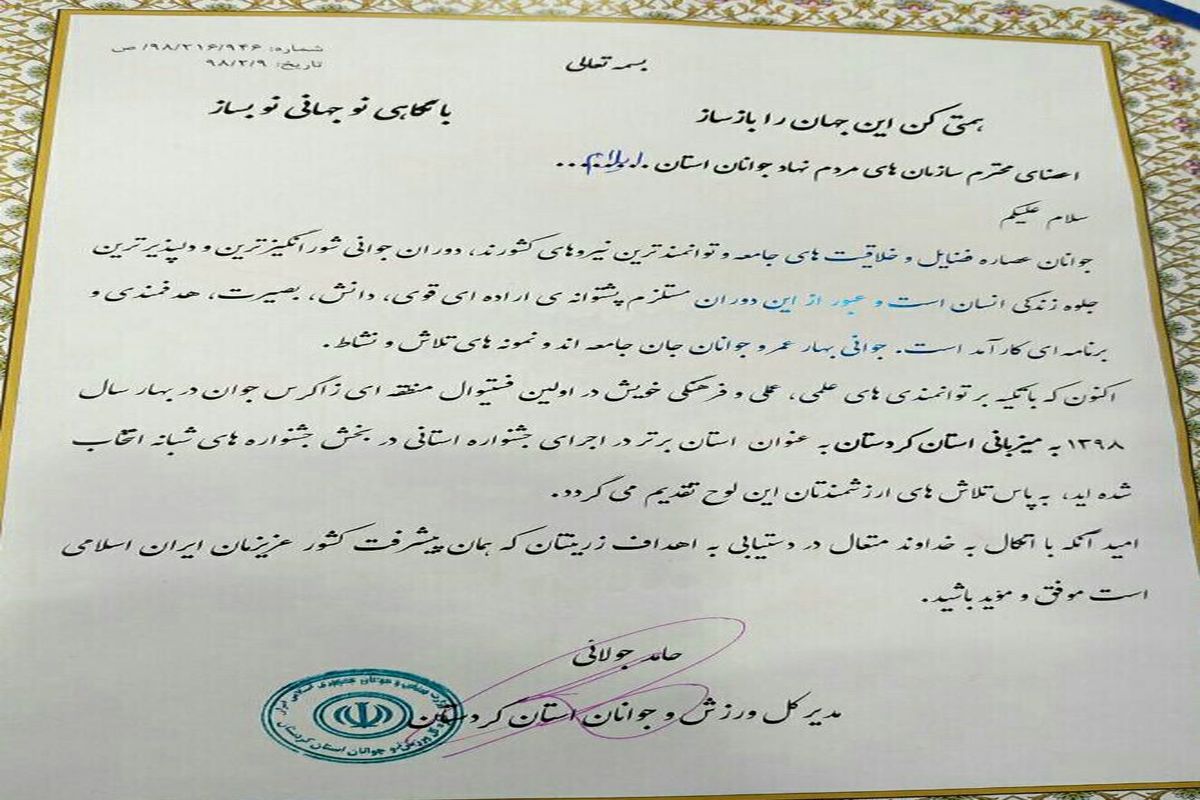 بسمه تعالی
شماره: ۹۸/۲۱۶/۹۴۶/ ص
تاریخ: ۹۸/۲/۹
همتی کن این جهان را بازساز با نگاهی نو جهانی نو بساز
اعضای محترم سازمان های مردم نهاد جوانان استان ..ایلام.....
سلام علیکم
جوانان عصاره فضایل و خلاقیت های جامعه و توانمندترین نیروهای کشورند، دوران جوانی شورانگیزترین و دلپذیرترین
جلوه زندگی انسان است و عبور از این دوران مستلزم پشتوانه ی اراده ای قوی، دانش، بصیرت، هدفمندی و
برنامه ای کارآمد است. جوانی بهار عمر و جوانان جان جامعه اند و نمونه های تلاش و نشاط.
اکنون که با تکیه بر توانمندی های علمی، عملی و فرهنگی خویش در اولین فستیوال منطقه ای زاگرس جوان در بهار سال
۱۳۹۸ به میزبانی استان کردستان به عنوان استان برتر در اجرای جشنواره استانی در بخش جشنواره های شبانه انتخاب
شده اید، به پاس تلاش های ارزشمندتان این لوح تقدیم می گردد.
امید آنکه با اتکال به خداوند متعال در دستیابی به اهداف زرینتان که همان پیشرفت کشور عزیزمان ایران اسلامی
است موفق و مؤید باشید.
حامد جولانی
مدیر کل ورزش و جوانان استان کردستان
وزارت ورزش و جوانان جمهوری اسلامی ایران
اداره کل ورزش و جوانان استان کردستان